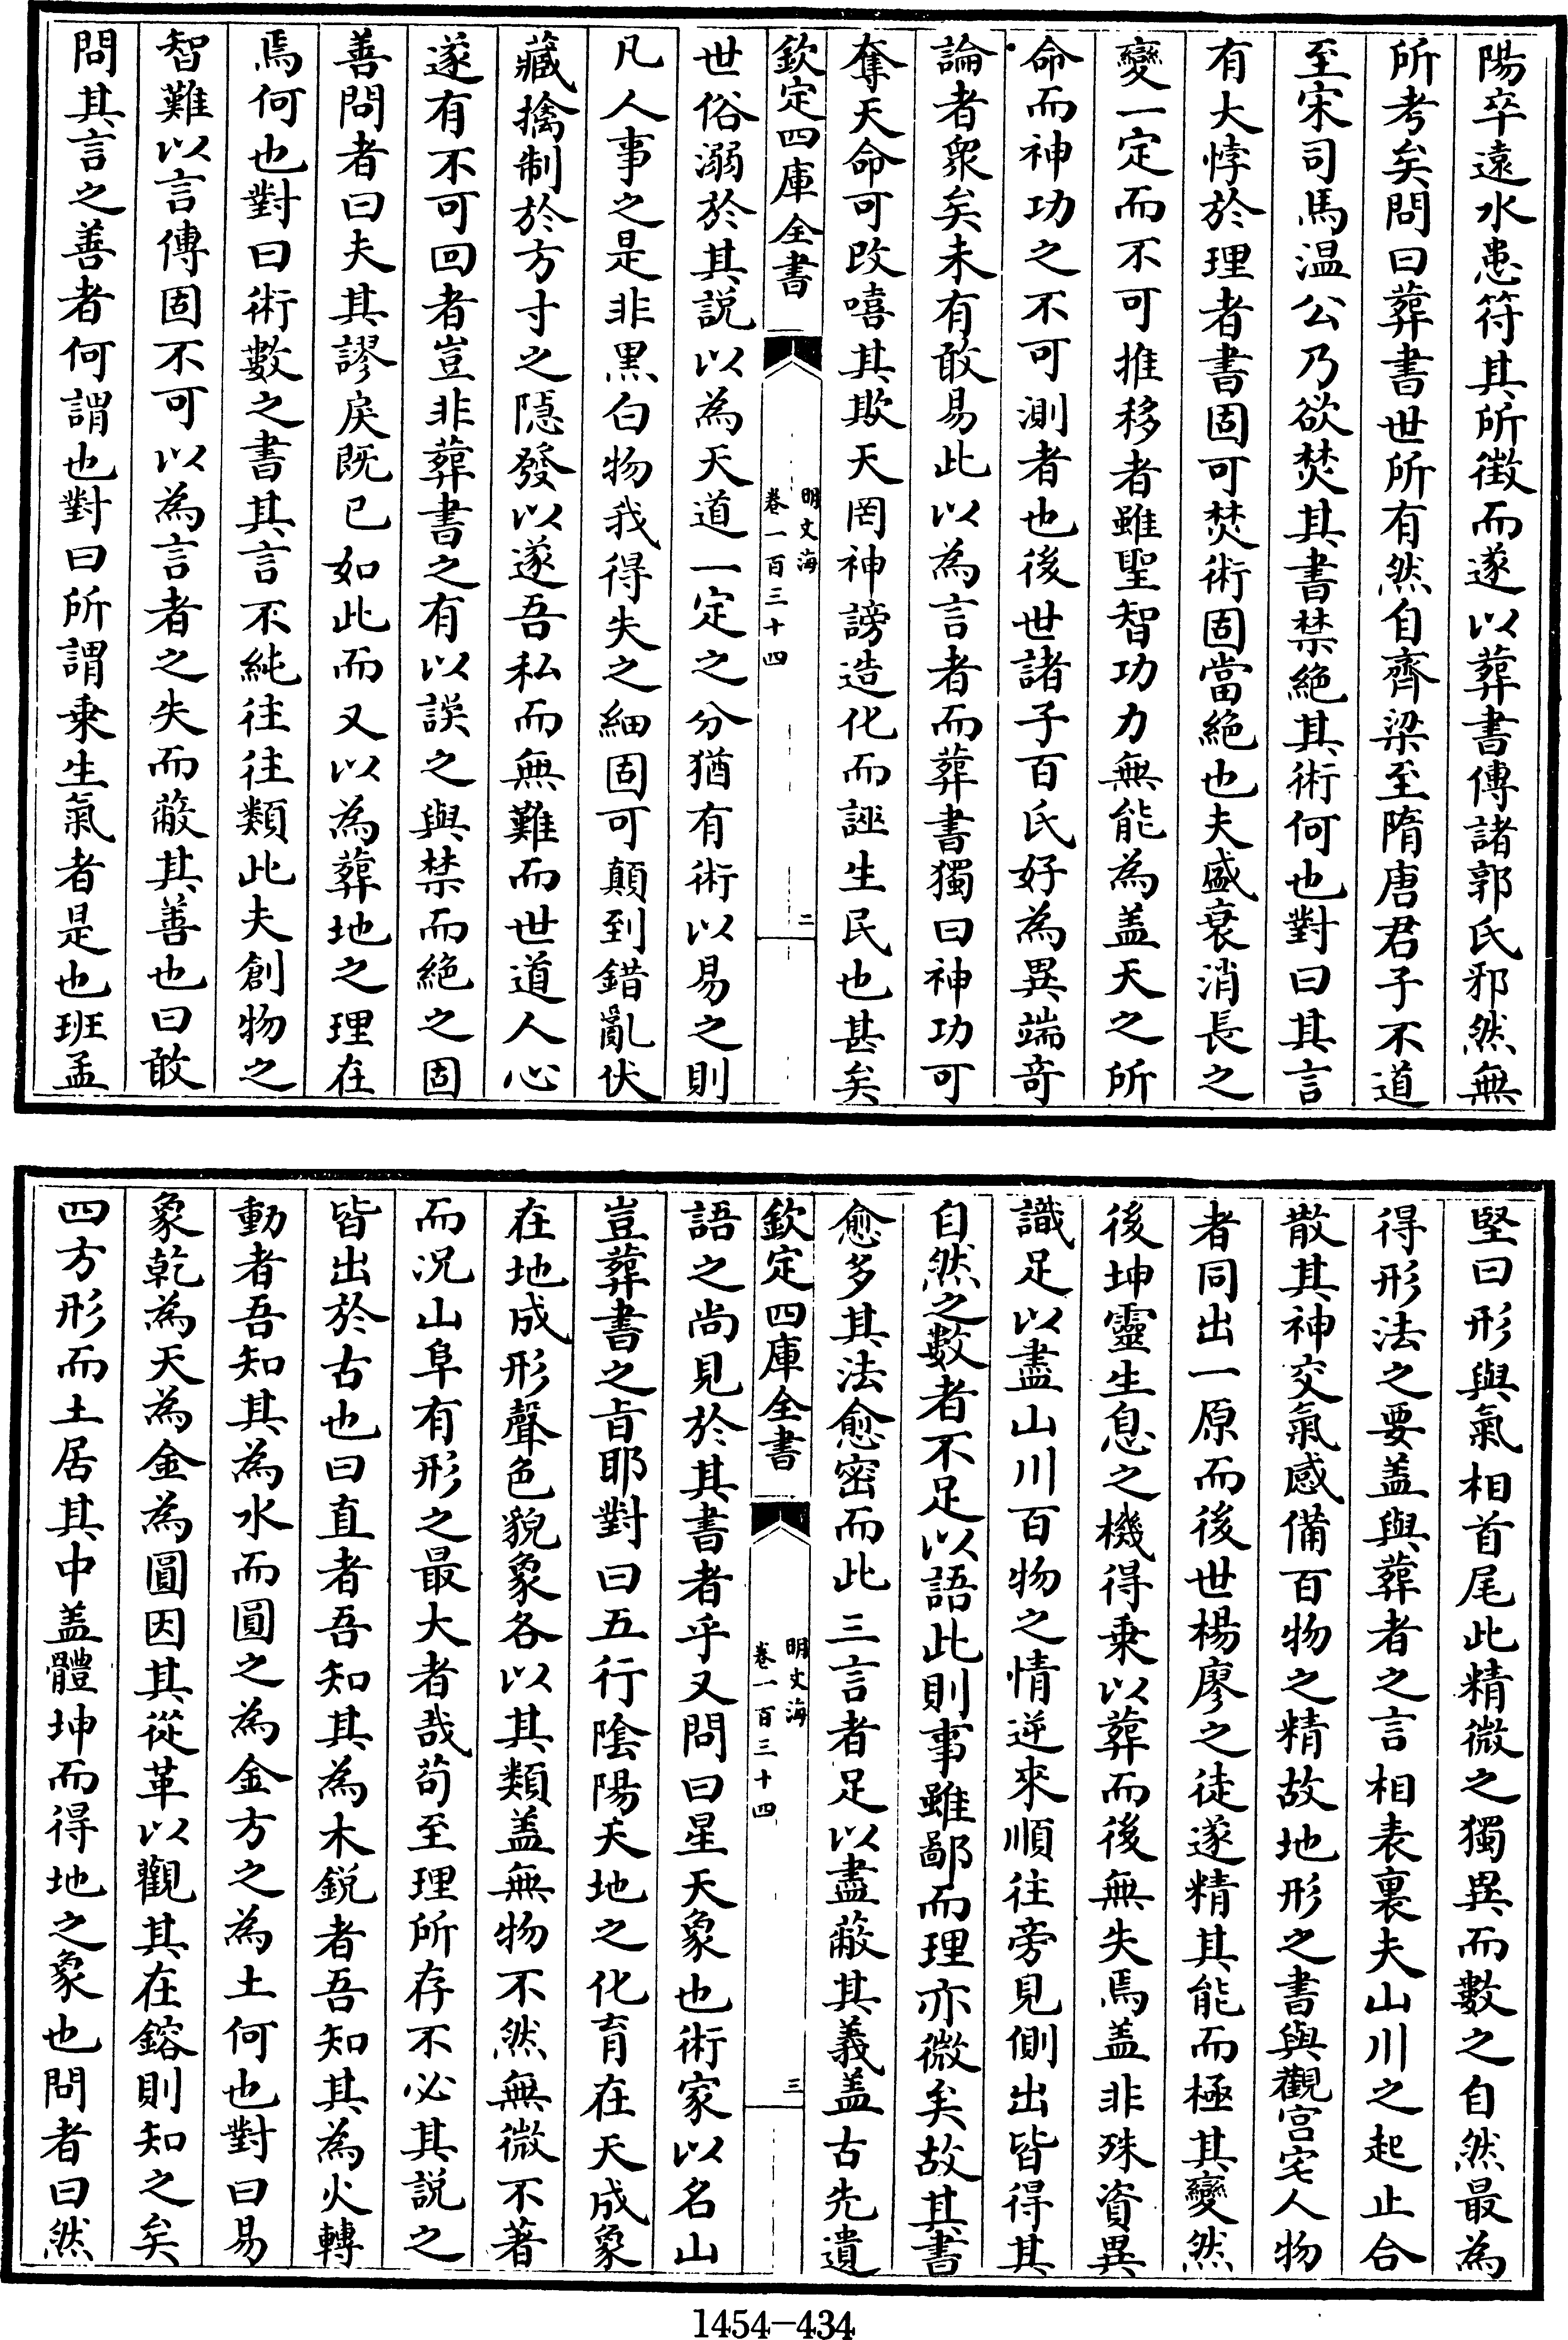 陽卒遠水患符其所徴而遂以葬書傳諸郭氏邪然無
所考矣問曰葬書世所有然自齊梁至隋唐君子不道
至宋司馬温公乃欲焚其書禁絶其術何也對曰其言
有大悖於理者書固可焚術固當絶也夫盛衰消長之
變一定而不可推移者雖聖智功力無能為盖天之所
命而神功之不可測者也後世諸子百氏好為異端竒
論者衆矣未有敢易此以為言者而葬書獨曰神功可
奪天命可改嘻其欺天罔神謗造化而誣生民也甚矣
欽定四庫全書
明文海
卷一百三十四
二
世俗溺於其説以為天道一定之分猶有術以易之則
凡人事之是非黒白物我得失之細固可顛到錯亂伏
藏擒制於方寸之隠發以遂吾私而無難而世道人心
遂有不可回者豈非葬書之有以誤之與禁而絶之固
善問者曰夫其謬戾既已如此而又以為葬地之理在
焉何也對曰術數之書其言不純往往類此夫創物之
智難以言傳固不可以為言者之失而蔽其善也曰敢
問其言之善者何謂也對曰所謂乗生氣者是也班孟
堅曰形與氣相首尾此精微之獨異而數之自然最為
得形法之要盖與葬者之言相表裏夫山川之起止合
散其神交氣感備百物之精故地形之書與觀宫宅人物
者同出一原而後世楊廖之徒遂精其能而極其變然
後坤靈生息之機得乗以葬而後無失焉盖非殊資異
識足以盡山川百物之情逆來順往旁見側出皆得其
自然之數者不足以語此則事雖鄙而理亦微矣故其書
愈多其法愈密而此三言者足以盡蔽其義盖古先遺
欽定四庫全書
明文海
卷一百三十四
三
語之尚見於其書者乎又問曰星天象也術家以名山
豈葬書之旨耶對曰五行隂陽天地之化育在天成象
在地成形聲色貌象各以其類盖無物不然無微不著
而况山阜有形之最大者哉苟至理所存不必其説之
皆出於古也曰直者吾知其為木鋭者吾知其為火轉
動者吾知其為水而圓之為金方之為土何也對曰易
象乾為天為金為圓因其從革以觀其在鎔則知之矣
四方形而土居其中盖體坤而得地之象也問者曰然
1454-434